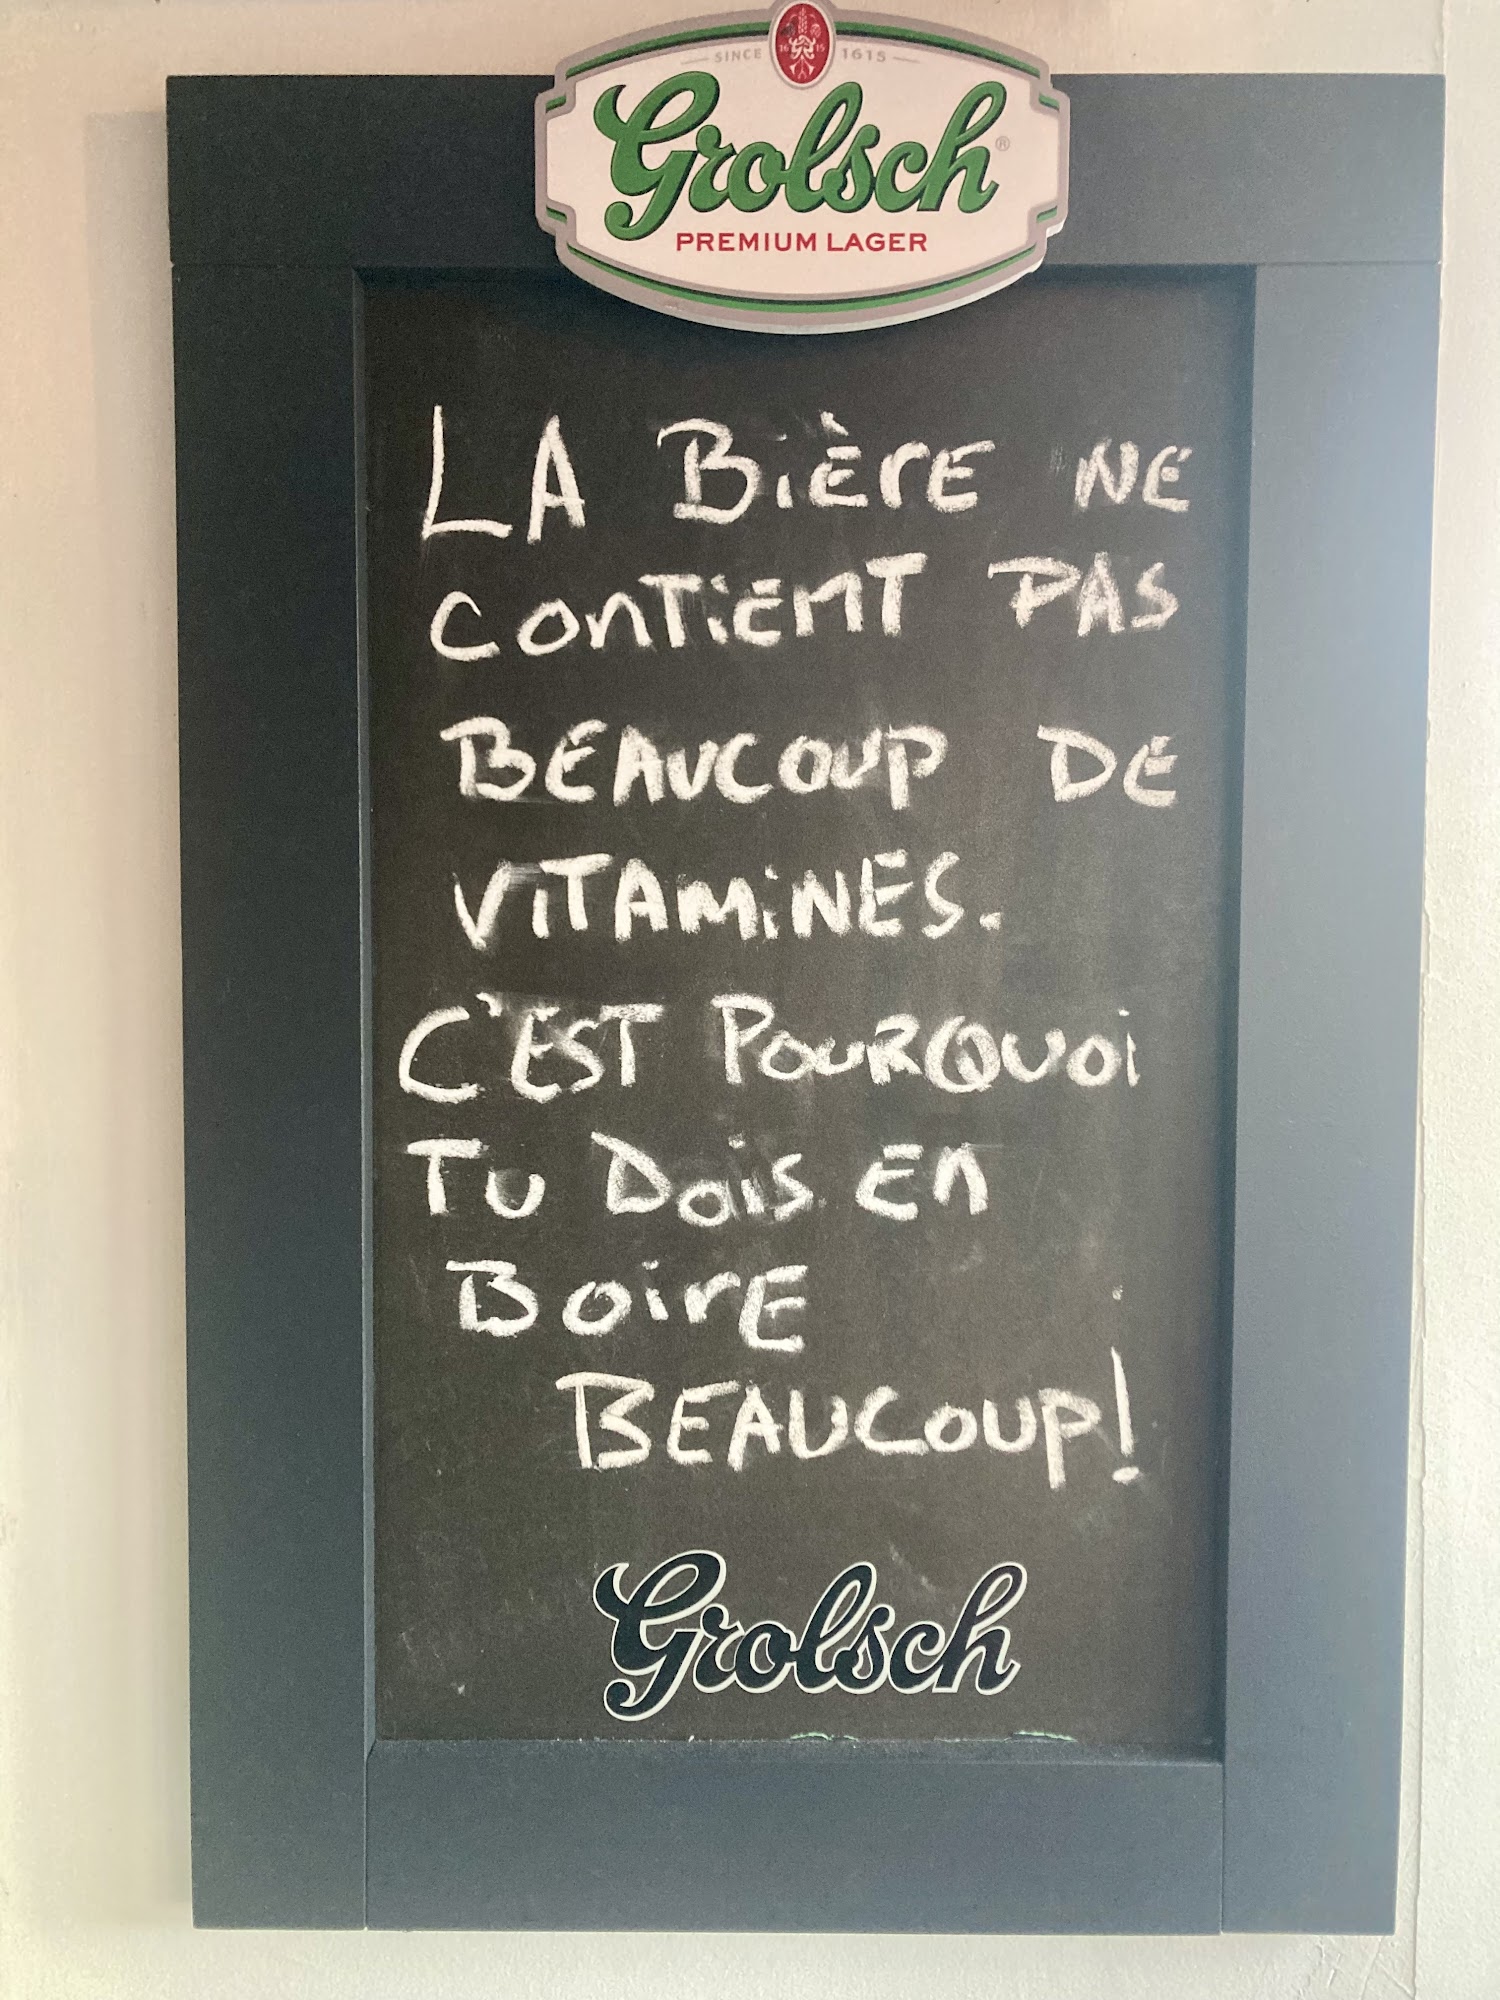 SINCE 1615
Grolsch®
PREMIUM LAGER
LA BièrE NE
conTiEnT PAS
BEAUCOUP DE
VITAMiNES.
C'EST POURQUOi
TU Dois En
BoirE
BEAUCOUP!
Grolsch